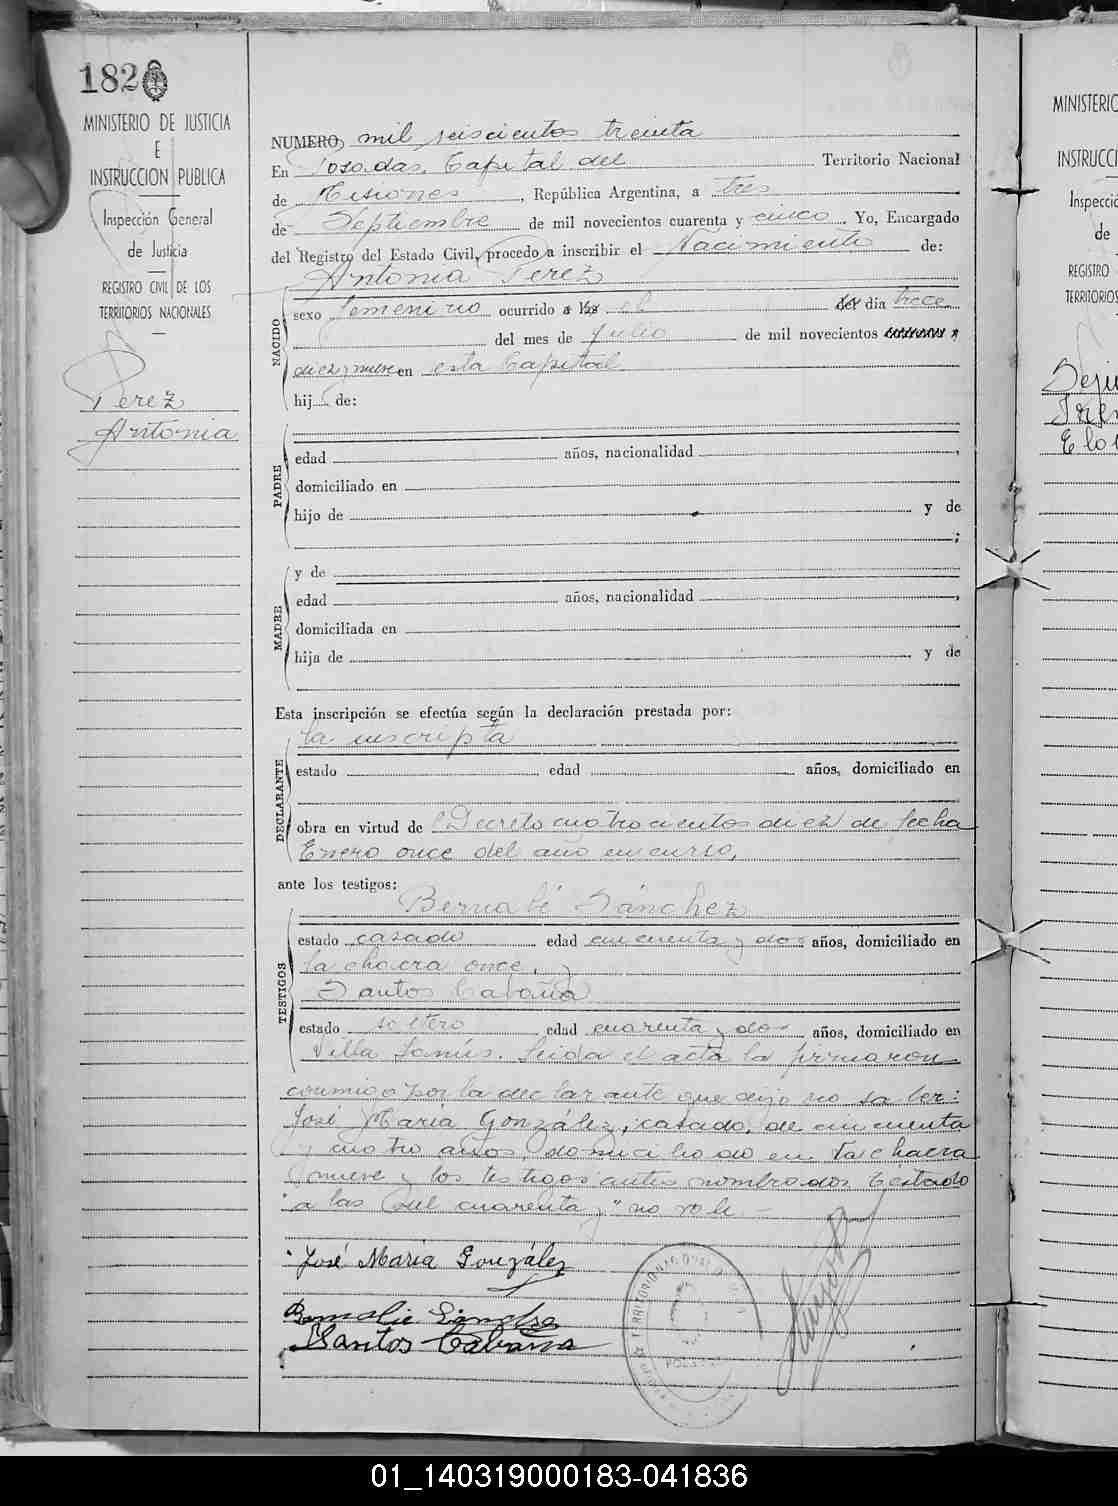 182
MINISTERIO DE JUSTICIA
E
INSTRUCCION PUBLICA
Inspección General
de Justicia
REGISTRO CIVIL DE LOS
TERRITORIOS NACIONALES
Perez
Antonia
NUMERO, mil seiscientos treinta
En Posadas, Capital del Territorio Nacional
de Misiones, República Argentina, a tres
de Septiembre de mil novecientos cuarenta y cinco. Yo, Encargado
del Registro del Estado Civil, procedo a inscribir el Nacimiento de:
Antonia Perez
NACIDO
sexo femenino ocurrido a las el del dia trece
del mes de Julio de mil novecientos
diez y nueve en esta Capital
hij de:
PADRE
edad años, nacionalidad ,
domiciliado en
hijo de y de
;
MADRE
y de
edad años, nacionalidad ,
domiciliada en
hija de y de
Esta inscripción se efectúa según la declaración prestada por:
DECLARANTE
la inscripta
estado edad años, domiciliado en
obra en virtud de Decreto cuatrocientos diez de fecha
Enero once del año en curso,
ante los testigos:
TESTIGOS
Bernabé Sánchez
estado casado edad cincuenta y dos años, domiciliado en
la chacra once.
Santos Cabaña
estado soltero edad cuarenta y dos años, domiciliado en
Villa Lanús. Leida el acta la firmaron
conmigo por la declarante que dijo no saber:
José María González, casado, de cincuenta
y cuatro años, domiciliado en la chacra
nueve y los testigos antes nombrados Testado
"a las del cuarenta y" no vale.-
José María González
Santos Cabaña
POSADAS
MINISTERIO
INSTRUCC
Inspecció
de
REGISTRO
TERRITORIOS
01_140319000183-041836